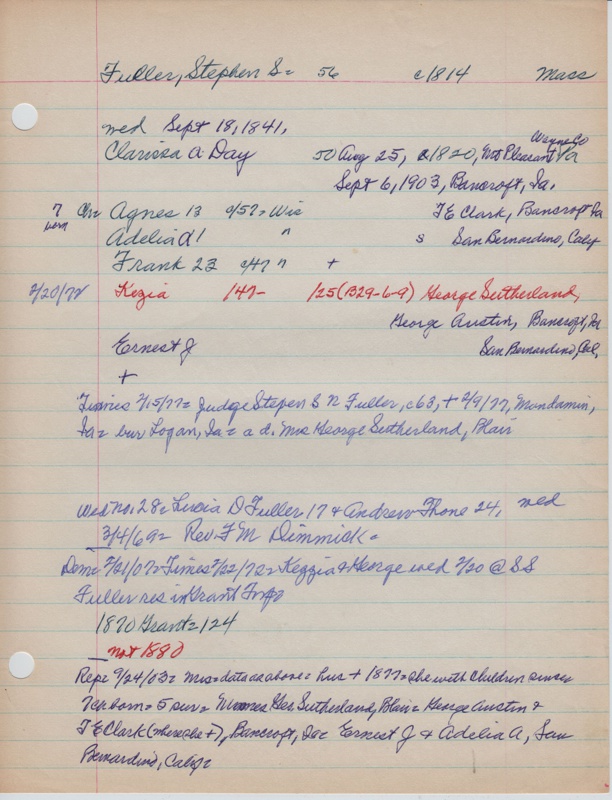 Fuller, Stephen S= 56 c1814 Mass
wed Sept 18, 1841,
Clarissa A Day 50 Aug 25, c1820, Mt Pleasant Wayne Co Pa
Sept 6, 1903, Bancroft, Ia.
7 born Ch= Agnes 13 c/57= Wis T E Clark, Bancroft Ia
Adelia A 1 " s San Bernardino, Calif
Frank 23 c/47 " +
2/20/72 Kezia /47- /25 (B29-6-9) George Sutherland,
George Austin, Bancroft, Ia
Ernest J San Bernardino, Cal,
+
Times 2/15/77= Judge Stepen S N Fuller, c63, + 2/9/77, Mondamin,
Ia= bur Logan, Ia= a d. Mrs George Sutherland, Blair
Wed no. 28= Lucia D Fuller 17 & Andrew Thone 24, wed
3/4/69= Rev. F M Dimmick=
Dem= 2/21/07= Times 2/22/72= Kezzia & George wed 2/20 @ S S
Fuller res in Grant Twp
1870 Grant= 124
not 1880
Rep= 9/24/03= Mrs= data as above= hus + 1877= she with children
7 ch born= 5 surv= Mmes Geo Sutherland, Blair= George Austin &
T E Clark (where she +), Bancroft, Ia= Ernest J & Adelia A, San
Bernardino, Calif=